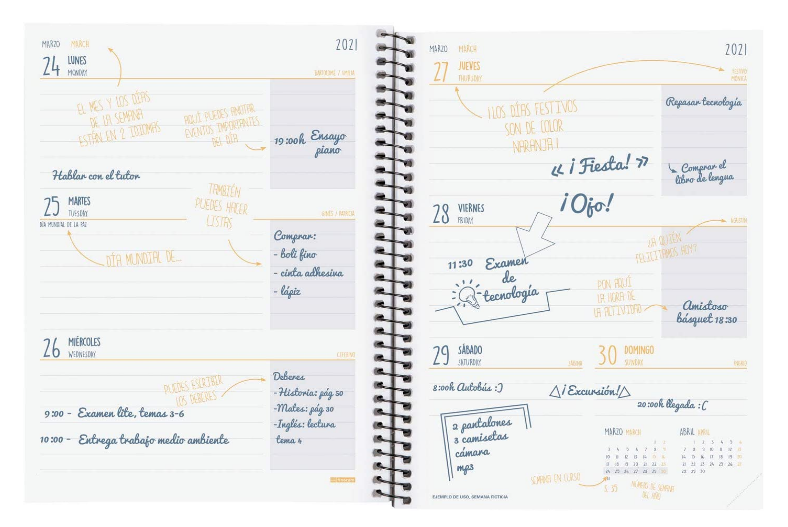 MARZO MARCH
2021
24 LUNES
MONDAY
EL MES Y LOS DÍAS
DE LA SEMANA
ESTÁN EN 2 IDIOMAS
AQUÍ PUEDES ANOTAR
EVENTOS IMPORTANTES
DEL DÍA
19:00h Ensayo
piano
Hablar con el tutor
25 MARTES
TUESDAY
DÍA MUNDIAL DE LA PAZ
TAMBIÉN
PUEDES HACER
LISTAS
DÍA MUNDIAL DE...
Comprar:
- boli fino
- cinta adhesiva
- lápiz
26 MIÉRCOLES
WEDNESDAY
PUEDES ESCRIBIR
LOS DEBERES
Deberes
- Historia: pág 50
- Mates: pág 30
- Inglés: lectura
tema 4
9:00 - Examen lite, temas 3-6
10:00 - Entrega trabajo medio ambiente
MARZO MARCH
2021
27 JUEVES
THURSDAY
¡LOS DÍAS FESTIVOS
SON DE COLOR
NARANJA!
Repasar tecnología
« ¡Fiesta! »
Comprar el
libro de lengua
28 VIERNES
FRIDAY
¡Ojo!
¿A QUIÉN
FELICITAMOS HOY?
11:30 Examen
de
tecnología
PON AQUÍ
LA HORA DE
LA ACTIVIDAD
Amistoso
básquet 18:30
29 SÀBADO
SATURDAY
30 DOMINGO
SUNDAY
8:00h Autobús :)
¡Excursión!
20:00h llegada :(
2 pantalones
3 camisetas
cámara
mp3
MARZO MARCH
ABRIL APRIL
SEMANA EN CURSO
NÚMERO DE SEMANA
DEL AÑO
EJEMPLO DE USO, SEMANA FICTICIA